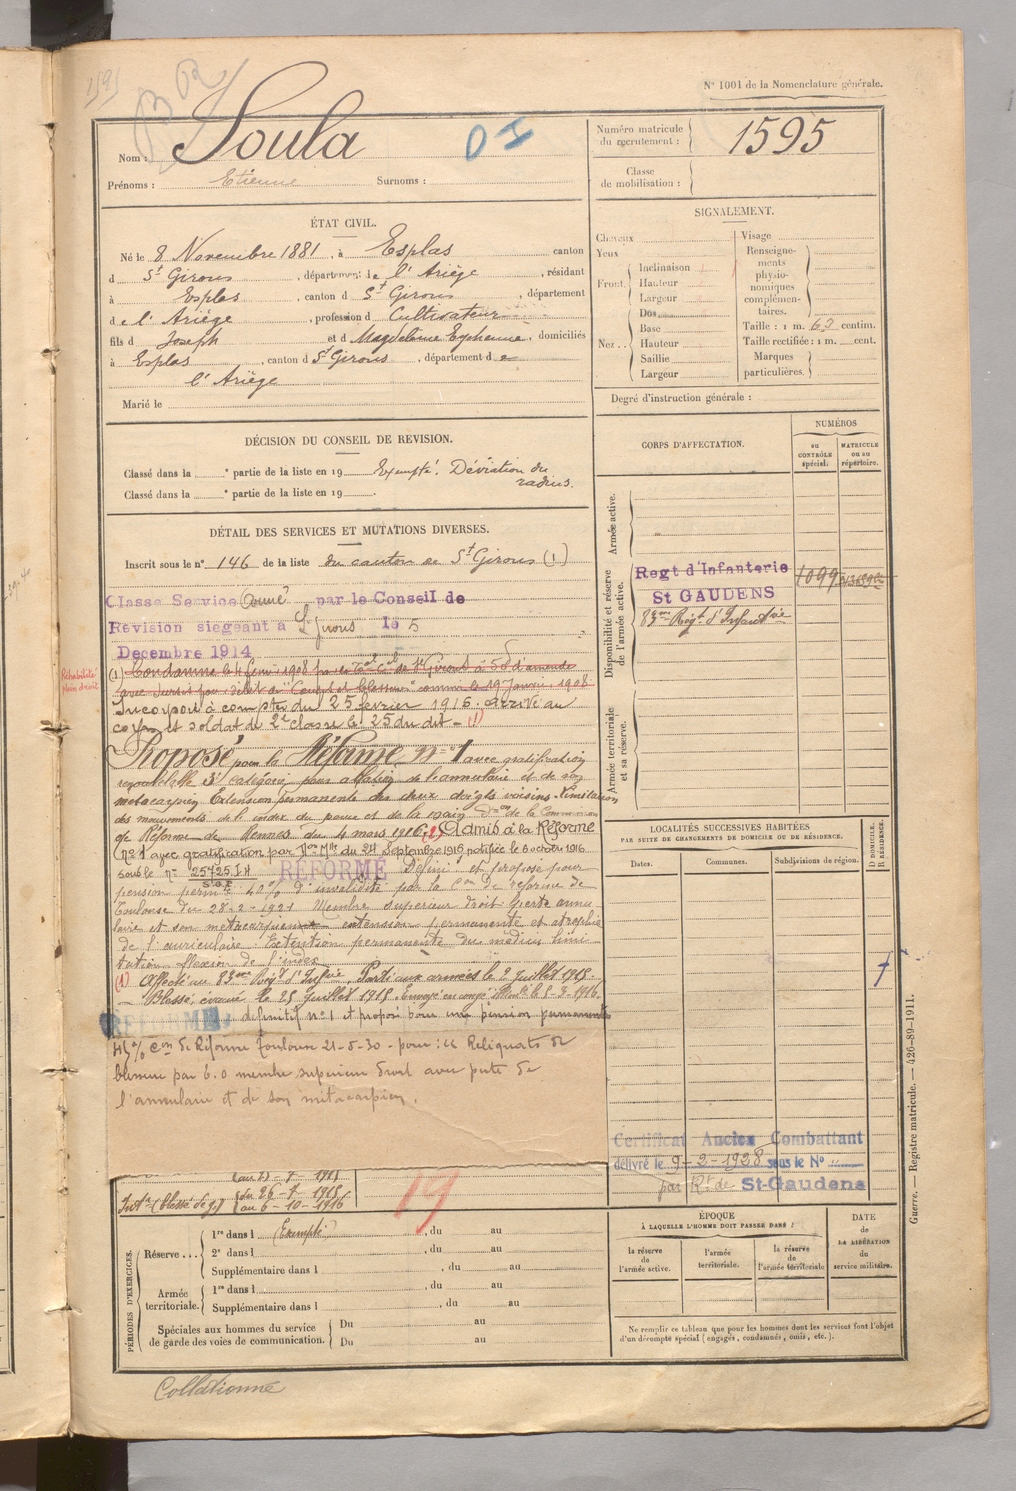 1595
BR
N° 1001 de la Nomenclature générale.
Nom : Soula
DI
Prénoms : Etienne Surnoms :
Numéro matricule du recrutement : 1595
Classe de mobilisation :
ÉTAT CIVIL.
Né le 8 Novembre 1881, à Esplas canton
d St Girons, département de l'Ariège, résidant
à Esplas, canton d St Girons, département
de l'Ariège, profession d Cultivateur
fils d Joseph et d Magdeleine Eychenne, domiciliés
à Esplas, canton d St Girons, département de
l'Ariège
Marié le
SIGNALEMENT.
Cheveux
Yeux
Front.
Inclinaison
Hauteur
Largeur
Nez..
Dos
Base
Hauteur
Saillie
Largeur
Visage
Renseignements physionomiques complémentaires.
Taille : 1 m. 63 centim.
Taille rectifiée : 1 m. cent.
Marques particulières.
Degré d'instruction générale :
DÉCISION DU CONSEIL DE REVISION.
Classé dans la e partie de la liste en 19 Exempté. Déviation du
radius.
Classé dans la e partie de la liste en 19 .
DÉTAIL DES SERVICES ET MUTATIONS DIVERSES.
Inscrit sous le n° 146 de la liste du canton de St Girons (1)
Classe Service Armé par le Conseil de
Révision siegeant à St Girons le 5
Decembre 1914
Réhabilité
plein droit
(1) Condamné le 4 février 1908 par le Tal Cel de St Girons à 50f d'amende
avec sursis pour délit de "Coups et blessures" commis le 19 Janvier 1908
Incorporé à compter du 25 février 1915. arrivé au
corps et soldat de 2e classe le 25 du dit - (1)
Proposé pour la Réforme n° 1 avec gratification
renouvelable 3e catégorie pour ablation de l'annulaire et de son
métacarpien Extension permanente des deux doigts voisins. Limitation
des mouvements de l'index du pouce et de la main Don de la Commission
de Réforme de Rennes du 4 mars 1916 (2) Admis à la Réforme
n° 1 avec gratification par Don Mlle du 24 Septembre 1916 notifiée le 6 octobre 1916
sous le n° 25725.I.H
S.G.P.
RÉFORMÉ
Définif et proposé pour
pension permte 40% d'invalidité par la Con de réforme de
Toulouse du 28-2-1921 Membre supérieur droit perte annu
laire et son métacarpien extension permanente et atrophie
de l'auriculaire. Extension permanente du médius limi
tation flexion de l'index
(1) Affecté au 83me Régt d'Infrie, Parti aux armées le 2 Juillet 1915.
Blessé, évacué le 25 Juillet 1915. Envoyé en congé illimté le 5-3-1916.
RÉFORMÉ
définitif n° 1 et proposé pour une pension permanente
45% Con de Réforme Toulouse 21-5-30 - pour : "Reliquats de
blessure par E.O membre supérieur droit avec perte de
l'annulaire et de son métacarpien.
du 26-7-1915
Intr (blessé de g.) au 6-10-1916
19
CORPS D'AFFECTATION.
NUMÉROS
au CONTRÔLE spécial.
MATRICULE ou au répertoire.
Armée active.
Disponibilité et réserve de l'armée active.
Regt d'Infanterie
St GAUDENS
1099
83me Régt d'Infanterie
Armée territoriale et sa réserve.
LOCALITÉS SUCCESSIVES HABITÉES
PAR SUITE DE CHANGEMENTS DE DOMICILE OU DE RÉSIDENCE.
Dates.
Communes.
Subdivisions de région.
D DOMICILE,
R RÉSIDENCE.
Certificat Ancien Combattant
délivré le 9-2-1928 sous le N°
par Rt de St-Gaudens
PÉRIODES D'EXERCICES.
Réserve...
1re dans l (Exempté), du au
2e dans l , du au
Supplémentaire dans l , du au
Armée territoriale.
1re dans l , du au
Supplémentaire dans l , du au
Spéciales aux hommes du service de garde des voies de communication.
Du au
Du au
ÉPOQUE
À LAQUELLE L'HOMME DOIT PASSER DANS :
la réserve de l'armée active.
l'armée territoriale.
la réserve de l'armée territoriale
DATE
de
LA LIBÉRATION
du
service militaire.
Ne remplir ce tableau que pour les hommes dont les services font l'objet
d'un décompte spécial (engagés, condamnés, omis, etc.).
Guerre. — Registre matricule. — 426-89-1911.
Collationné